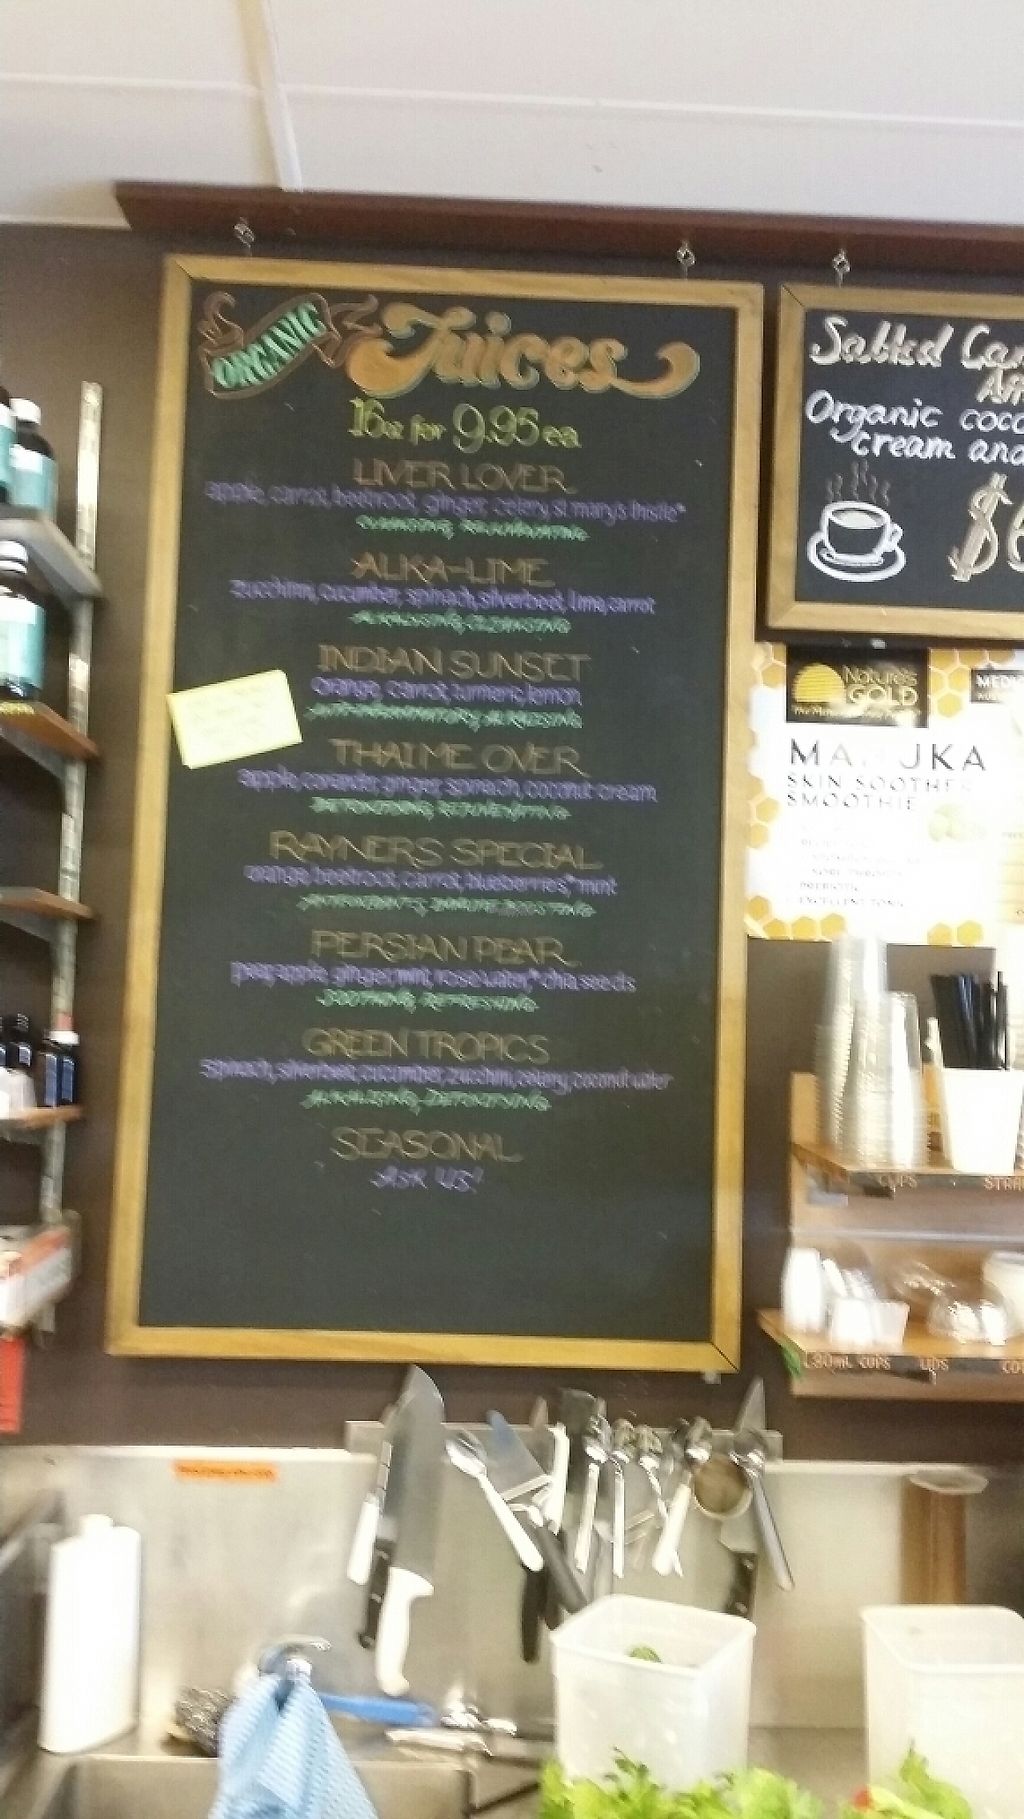 ORGANIC Juices
16oz for 9.95 ea
LIVER LOVER
apple, carrot, beetroot, ginger, celery, st mary's thistle*
CLEANSING, REJUVENATING
ALKA-LIME
zucchini, cucumber, spinach, silverbeet, lime, carrot
ALKALISING, CLEANSING
INDIAN SUNSET
orange, carrot, turmeric, lemon
ANTI-INFLAMMATORY, ALKALISING
THAI ME OVER
apple, coriander, ginger, spinach, coconut cream
DETOXIFYING, REJUVENATING
RAYNERS SPECIAL
orange, beetroot, carrot, blueberries,* mint
ANTIOXIDANTS, IMMUNE BOOSTING
PERSIAN PEAR
pear, apple, ginger, mint, rose water,* chia seeds
SOOTHING, REFRESHING
GREEN TROPICS
Spinach, silverbeet, cucumber, zucchini, celery, coconut water
ALKALISING, DETOXIFYING
SEASONAL
ASK US!
Salted Car
Organic coco
cream and
$6
Nature's
GOLD
MEDIC
MANUKA
SKIN SOOTHER
SMOOTHIE
CUPS
STRA
LIDS